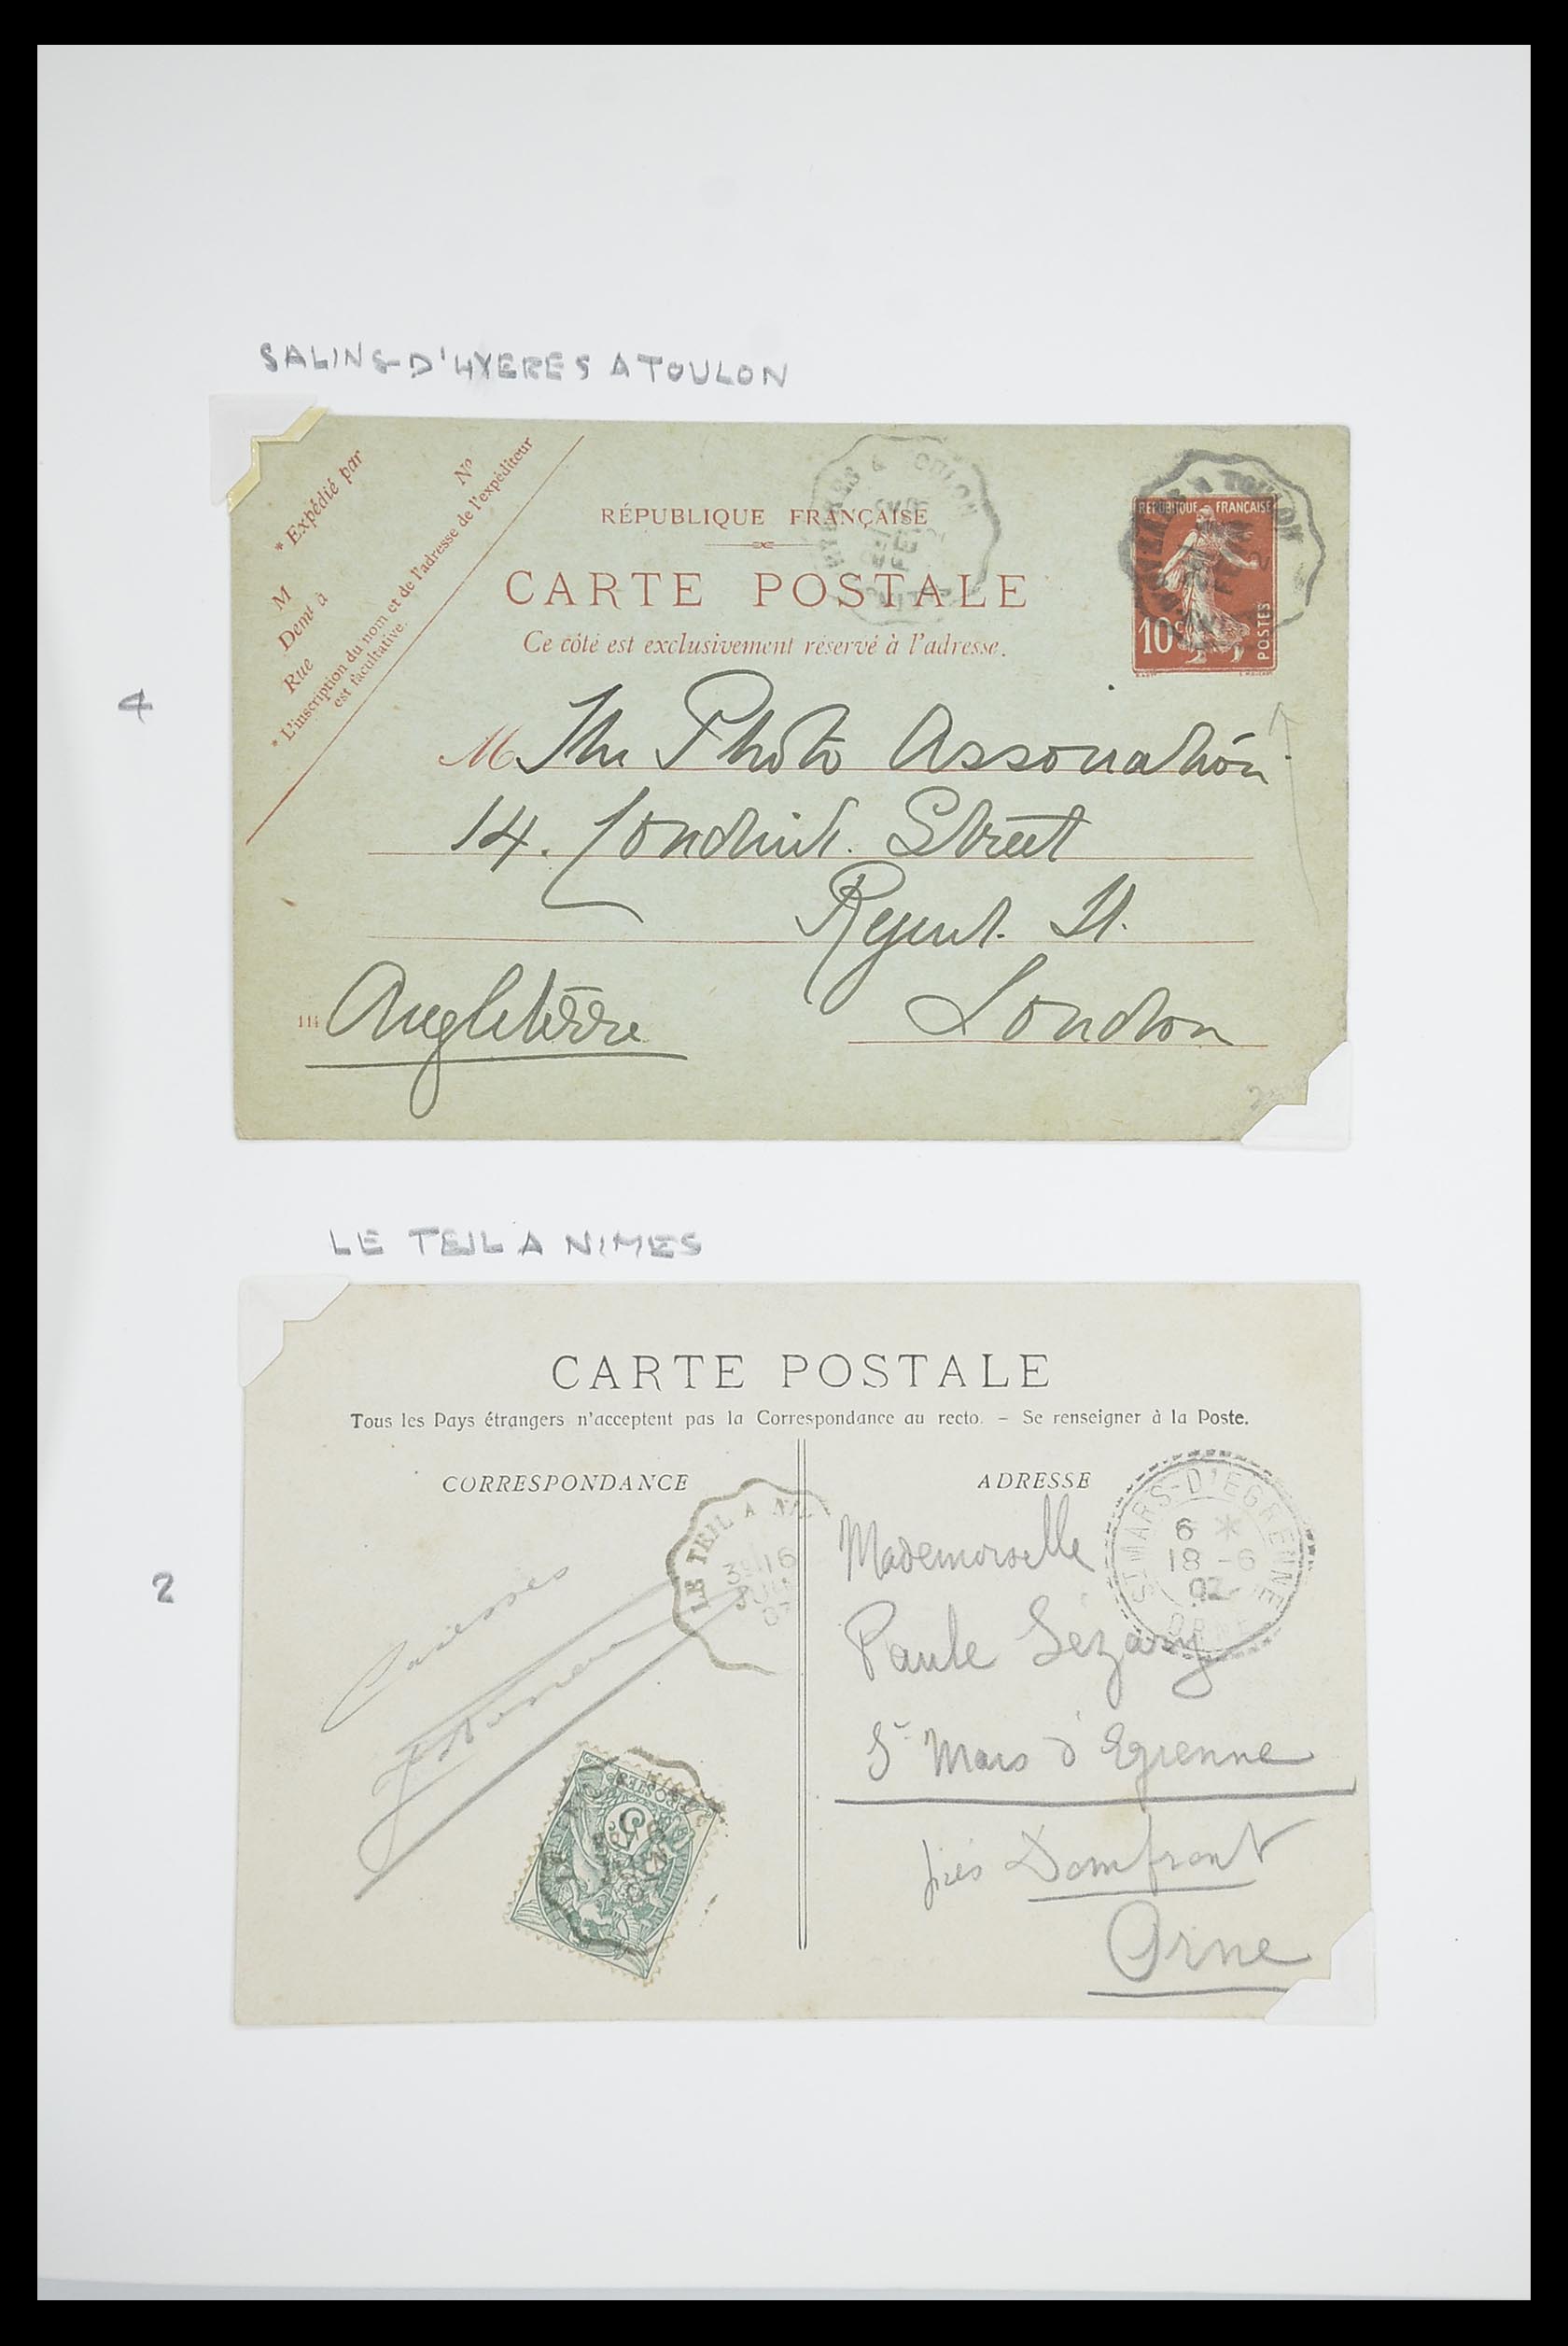 SALINS-D'HYERES A TOULON
* Expédié par
No
M
Demt à
Rue
* L'inscription du nom et de l'adresse de l'expéditeur
est facultative.
RÉPUBLIQUE FRANÇAISE
CARTE POSTALE
Ce côté est exclusivement réservé à l'adresse.
HYERES A TOULON
A TOULON
RÉPUBLIQUE FRANÇAISE
10c
POSTES
4
M The Photo Association
14. Conduit. Street
Regent. St.
London
114
Angleterre
LE TEIL A NIMES
CARTE POSTALE
Tous les Pays étrangers n'acceptent pas la Correspondance au recto. – Se renseigner à la Poste.
CORRESPONDANCE
ADRESSE
LE TEIL A NI
16
JUIN
07
ST MARS-D'EGRENNE
6 *
18 -6
07
ORNE
2
Caresses
Mademoiselle
Paule Lézary
St Mars d'Egrenne
près Domfront
Orne
POSTES
5